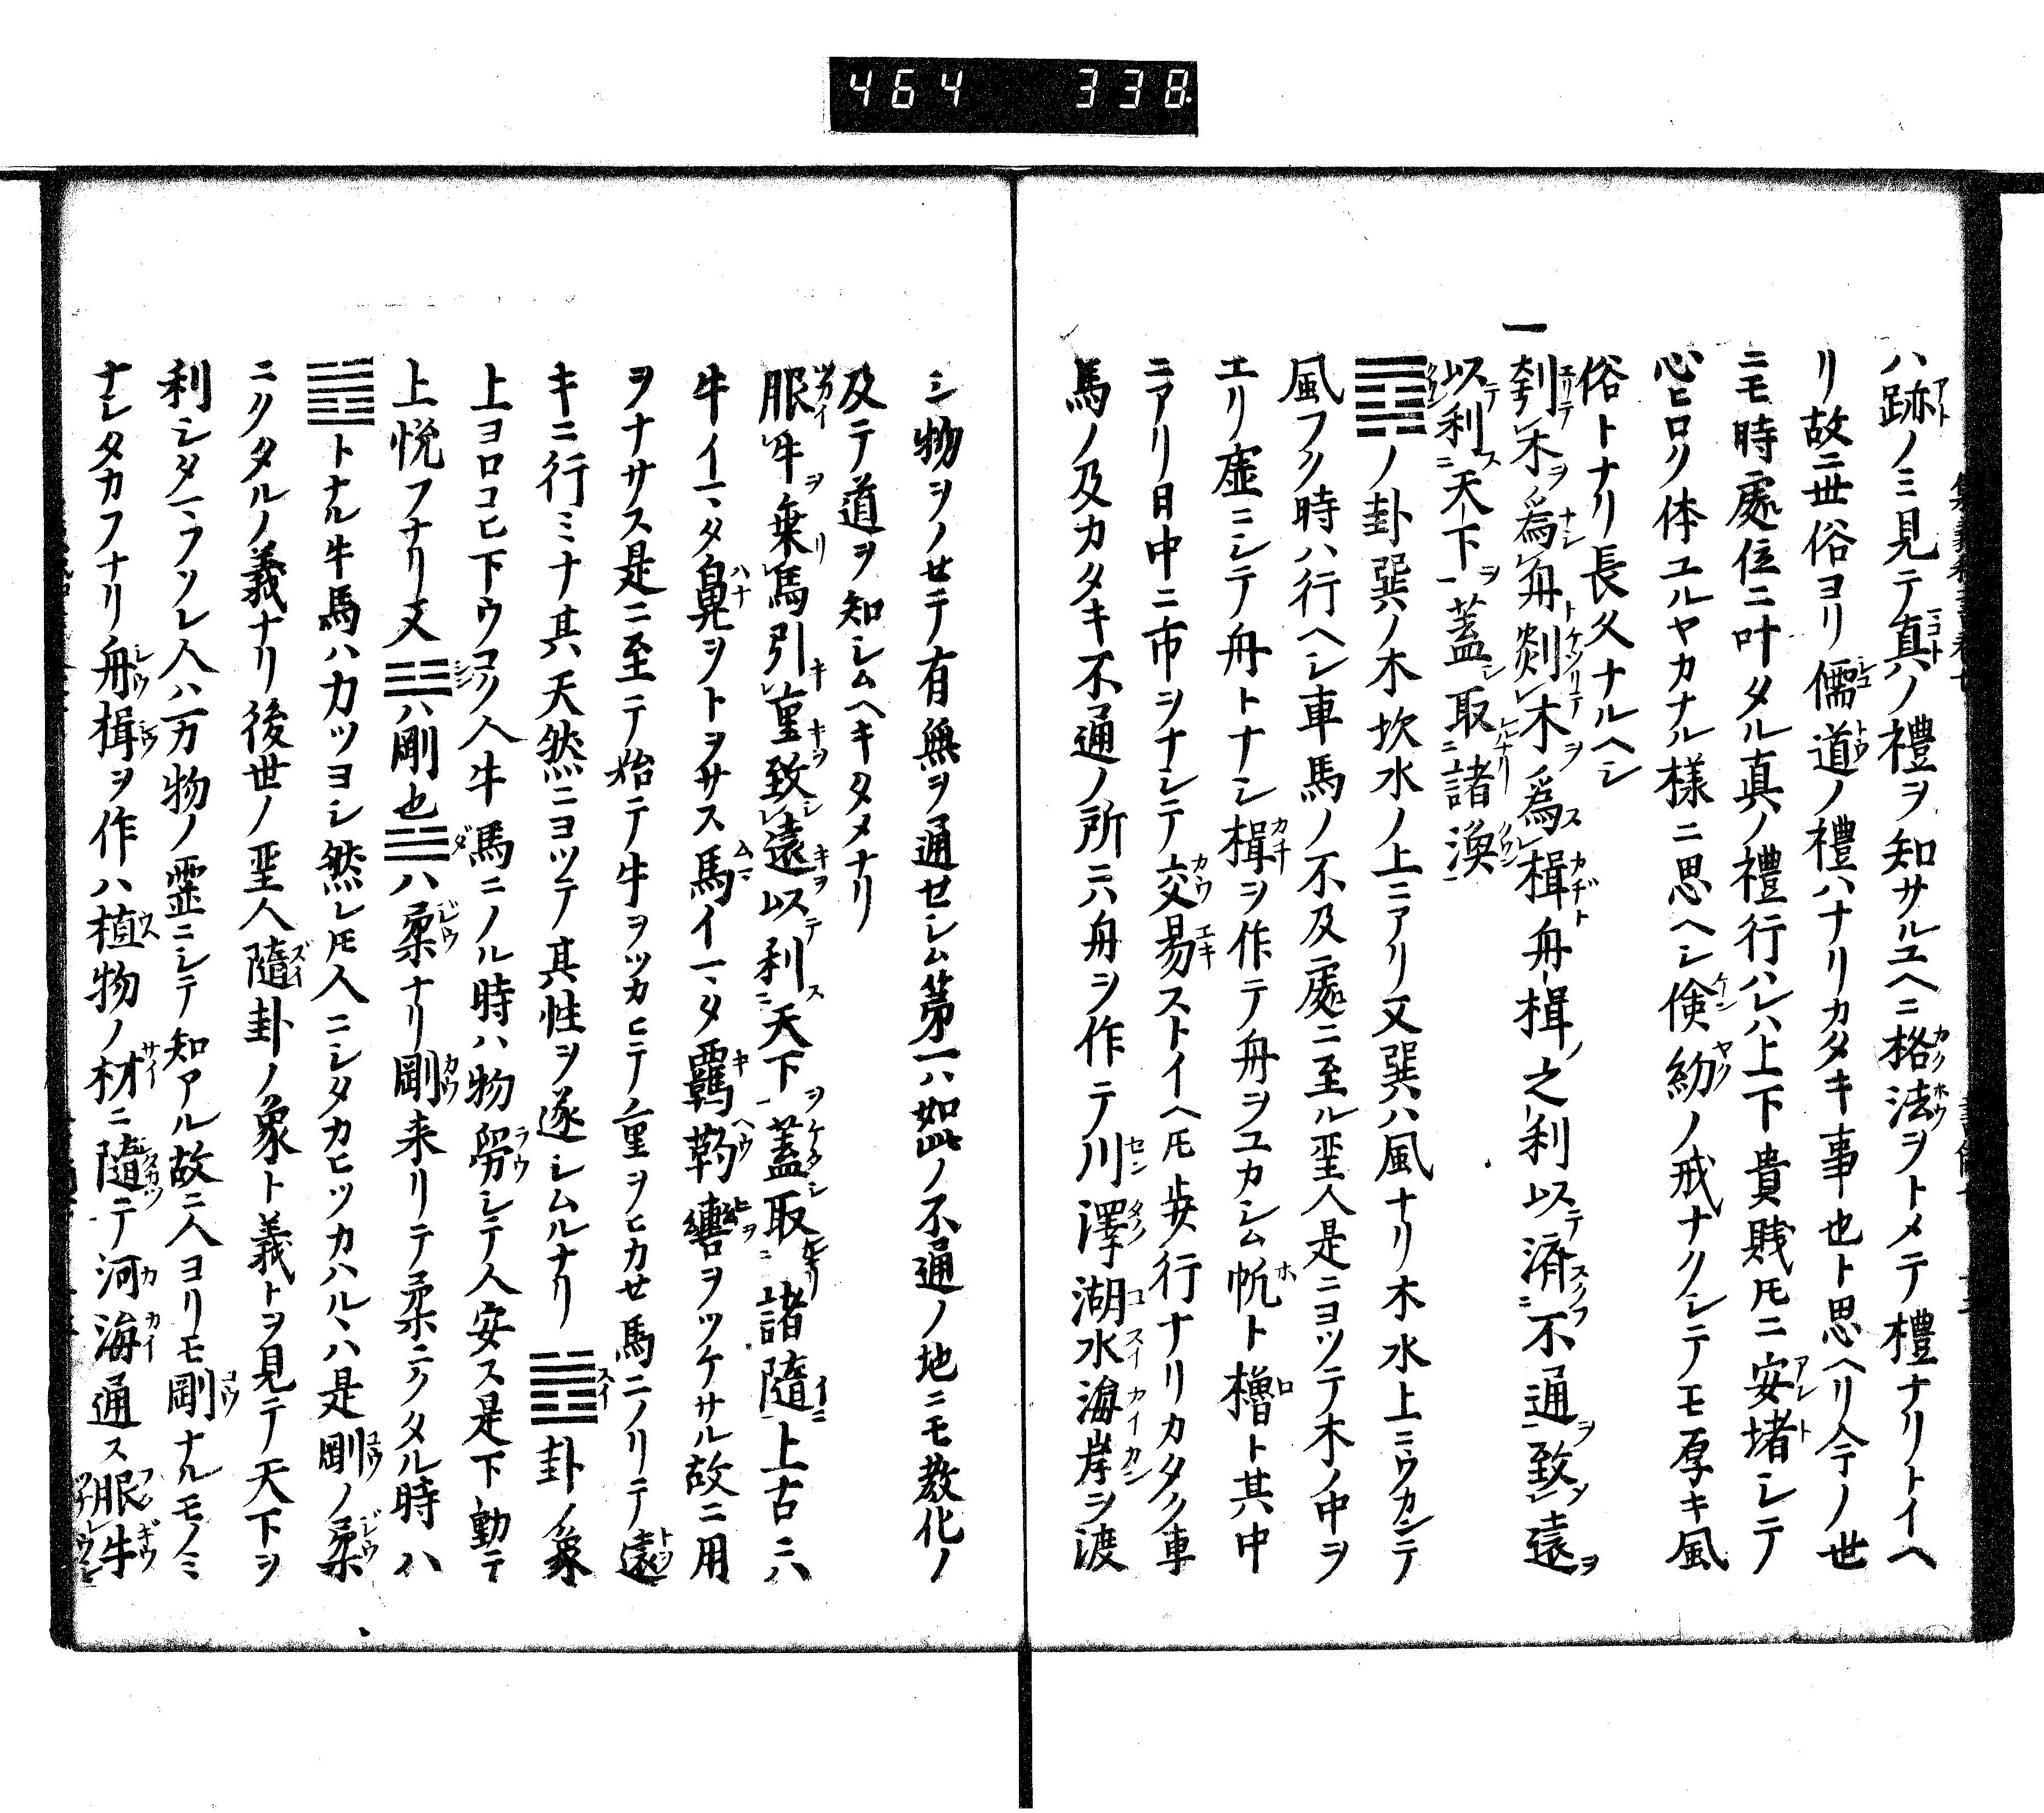 464 338
ハ跡ノミ見テ真ノ禮ヲ知サルユヘニ格法ヲトメテ禮ナリトイヘ
リ故ニ世俗ヨリ儒道ノ禮ハナリカタキ事也ト思ヘリ今ノ世
ニモ時處位ニ叶タル真ノ禮行ハレハ上下貴賎𪜈ニ安堵シテ
心ヒロク体ユルヤカナル様ニ思ヘシ倹約ノ戒ナクシテモ厚キ風
俗トナリ長久ナルヘシ
一刳木爲舟剡木爲楫舟楫之利以済不通致遠
以利天下蓋取諸渙
䷺ノ卦巽ノ木坎水ノ上ニアリ又巽ハ風ナリ木水上ニウカンテ
風フク時ハ行ヘシ車馬ノ不及處ニ至ル聖人是ニヨツテ木ノ中ヲ
エリ虚ニシテ舟トナシ楫ヲ作テ舟ヲユカシム帆ト櫓ト其中
ニアリ日中ニ市ヲナシテ交易ストイヘ𪜈歩行ナリカタク車
馬ノ及カタキ不通ノ所ニハ舟ヲ作テ川澤湖水海岸ヲ渡
シ物ヲノセテ有無ヲ通セシム第一ハ如此ノ不通ノ地ニモ教化ノ
及テ道ヲ知シムヘキタメナリ
服牛乗馬引重致遠以利天下蓋取諸隨上古ニハ
牛イマタ鼻ヲトヲサス馬イマタ羈靮轡ヲツケサル故ニ用
ヲナサス是ニ至テ始テ牛ヲツカヒテ重ヲヒカセ馬ニノリテ遠
キニ行ミナ其天然ニヨツテ其性ヲ遂シムルナリ䷐卦ノ象
上ヨロコヒ下ウコク人牛馬ニノル時ハ物労シテ人安ス是下動テ
上悦フナリ又☳ハ剛也☱ハ柔ナリ剛来リテ柔ニクタル時ハ
䷐トナル牛馬ハ力ツヨシ然レ𪜈人ニシタカヒツカハルヽハ是剛ノ柔
ニクタルノ義ナリ後世ノ聖人隨卦ノ象ト義トヲ見テ天下ヲ
利シタマフソレ人ハ万物ノ霊ニシテ知アル故ニ人ヨリモ剛ナルモノミ
ナシタカフナリ舟楫ヲ作ハ植物ノ材ニ隨テ河海通ス服牛